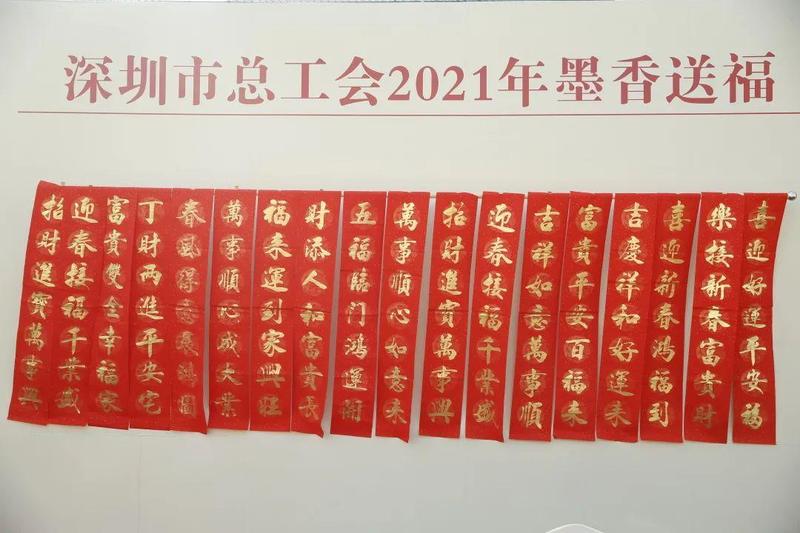 深圳市总工会2021年墨香送福
喜迎好運平安福
樂接新春富貴財
喜迎新春鴻福到
吉慶祥和好運來
富貴平安百福來
吉祥如意萬事順
迎春接福千業盛
招財進寶萬事興
萬事順心如意來
五福臨门鴻運開
財添人和富貴長
福來運到家興旺
萬事順心成大業
春風得意展鴻圖
丁財两進平安宅
富貴雙全幸福家
迎春接福千業盛
招財進寶萬事興